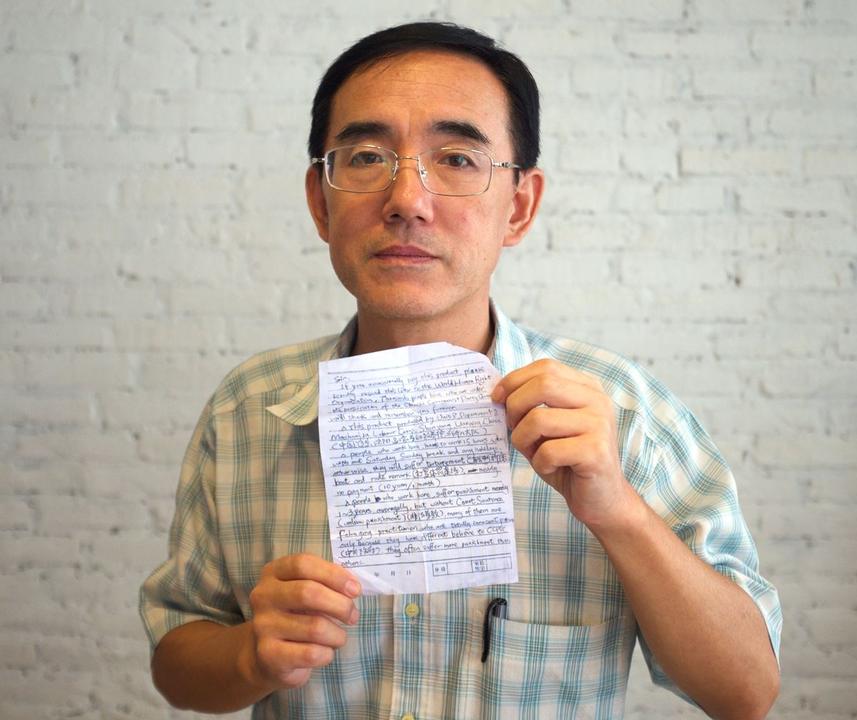 Sir:
If you occasionally buy this product, please
kindly resend this letter to the World Human Right
Organization. Thousands people here who are under
the persicution of the
will thank and remember you forever.
This product produced by Unit 8, Department 2,
Mashanjia Labour Camp, Shenyang, Liaoning, China
people who work here, have to work 15 hours a day
with out Saturday, Sunday break and any holidays,
otherwise, they will suffer torturement
beat and rude remark nearly
no payment (10 yuan/1 month).
people who work here, suffer punishment nearly
1~3 years averagelly, but without Court Sentence
(unlaw punishment) many of them are
Falun gong practitioner, who are totally innocent people
only because they have different believe to CCPG
they often suffer more punishment than
others.